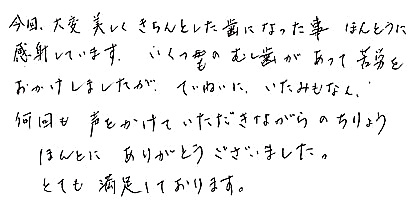 今回、大変美しくきちんとした歯になった事 ほんとうに
感射しています。いくつものむし歯があって苦労を
おかけしましたが、ていねいに、いたみもなく、
何回も声をかけていただきながらのちりょう
ほんとに ありがとうございました。
とても満足しております。